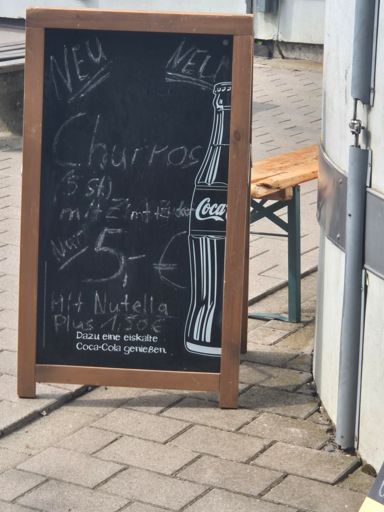 NEU NEU
Churros
(5 st)
mit Zimt+Zucker
Nur 5,- €
Coca
Mit Nutella
Plus 1,50€
Dazu eine eiskalte
Coca-Cola genießen.